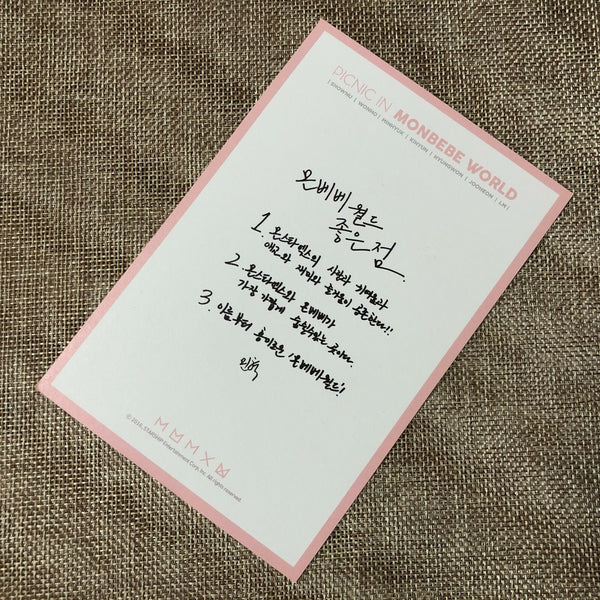 PICNIC IN MONBEBE WORLD
| SHOWNU | WONHO | MINHYUK | KIHYUN | HYUNGWON | JOOHEON | I.M |
몬베베 월드
좋은점.
1. 몬스타엑스의 사랑과 귀여움과
애교와 재미와 즐거움이 공존한다!!
2. 몬스타엑스와 몬베베가
가장 가깝게 숨쉴수있는 곳이다.
3. 이름부터 흥미로운 '몬베베월드'!
민혁
© 2016. STARSHIP Entertainment Corp, Inc. All rights reserved.